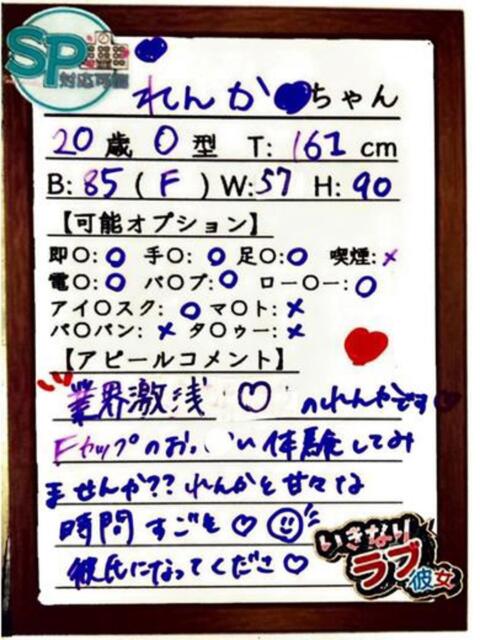 SP
対応可能
れんかちゃん
20歳 O型 T: 161cm
B: 85 (F) W: 57 H: 90
【可能オプション】
即〇:〇 手〇:〇 足〇:〇 喫煙:×
電〇:〇 バ〇ブ:〇 ロー〇ー:〇
アイ〇スク:〇 マ〇ト:×
パ〇パン:× タ〇ゥー:×
【アピールコメント】
業界激浅♡のれんかです♡
Fカップのおっ い体験してみ
ませんか??れんかと甘々な
時間すごそ♡
彼氏になってくださ♡
いきなり
ラブ
彼女